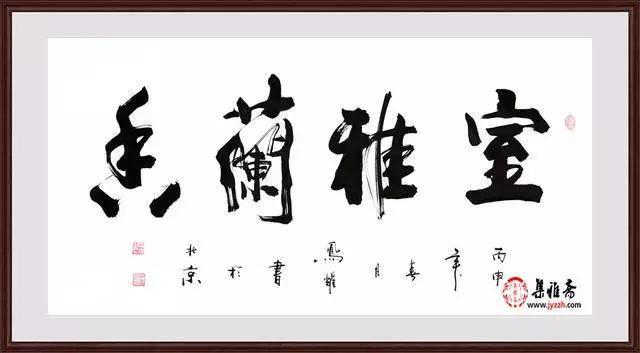 室雅蘭香
丙申年春月鳳書於北京
集雅斋
www.jyzzh.com